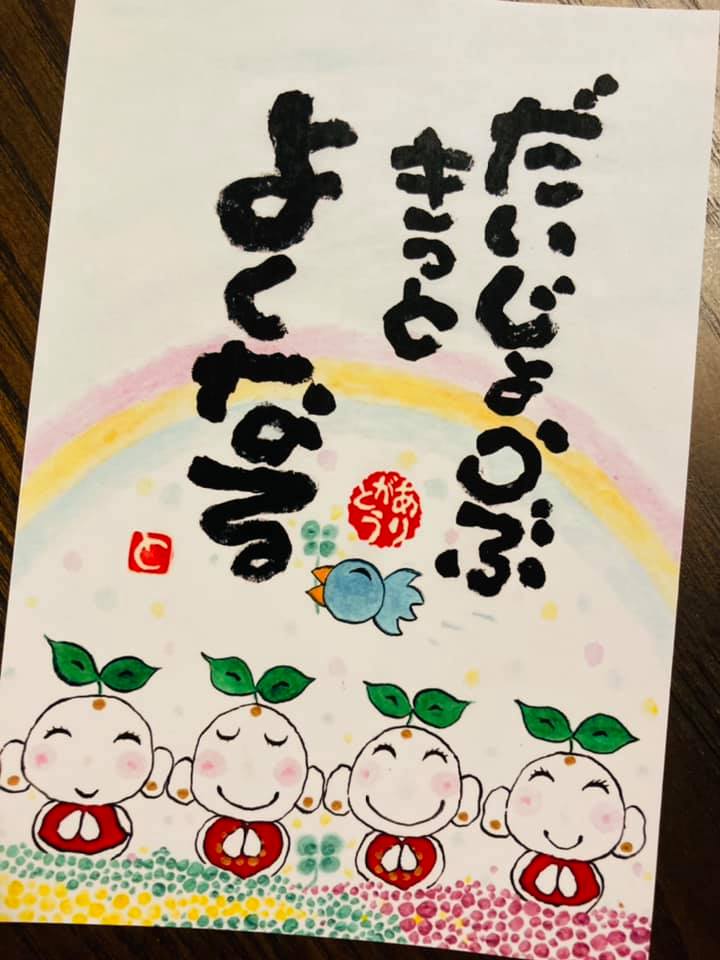 だいじょうぶ
きっと
よくなる
ありがとう
と